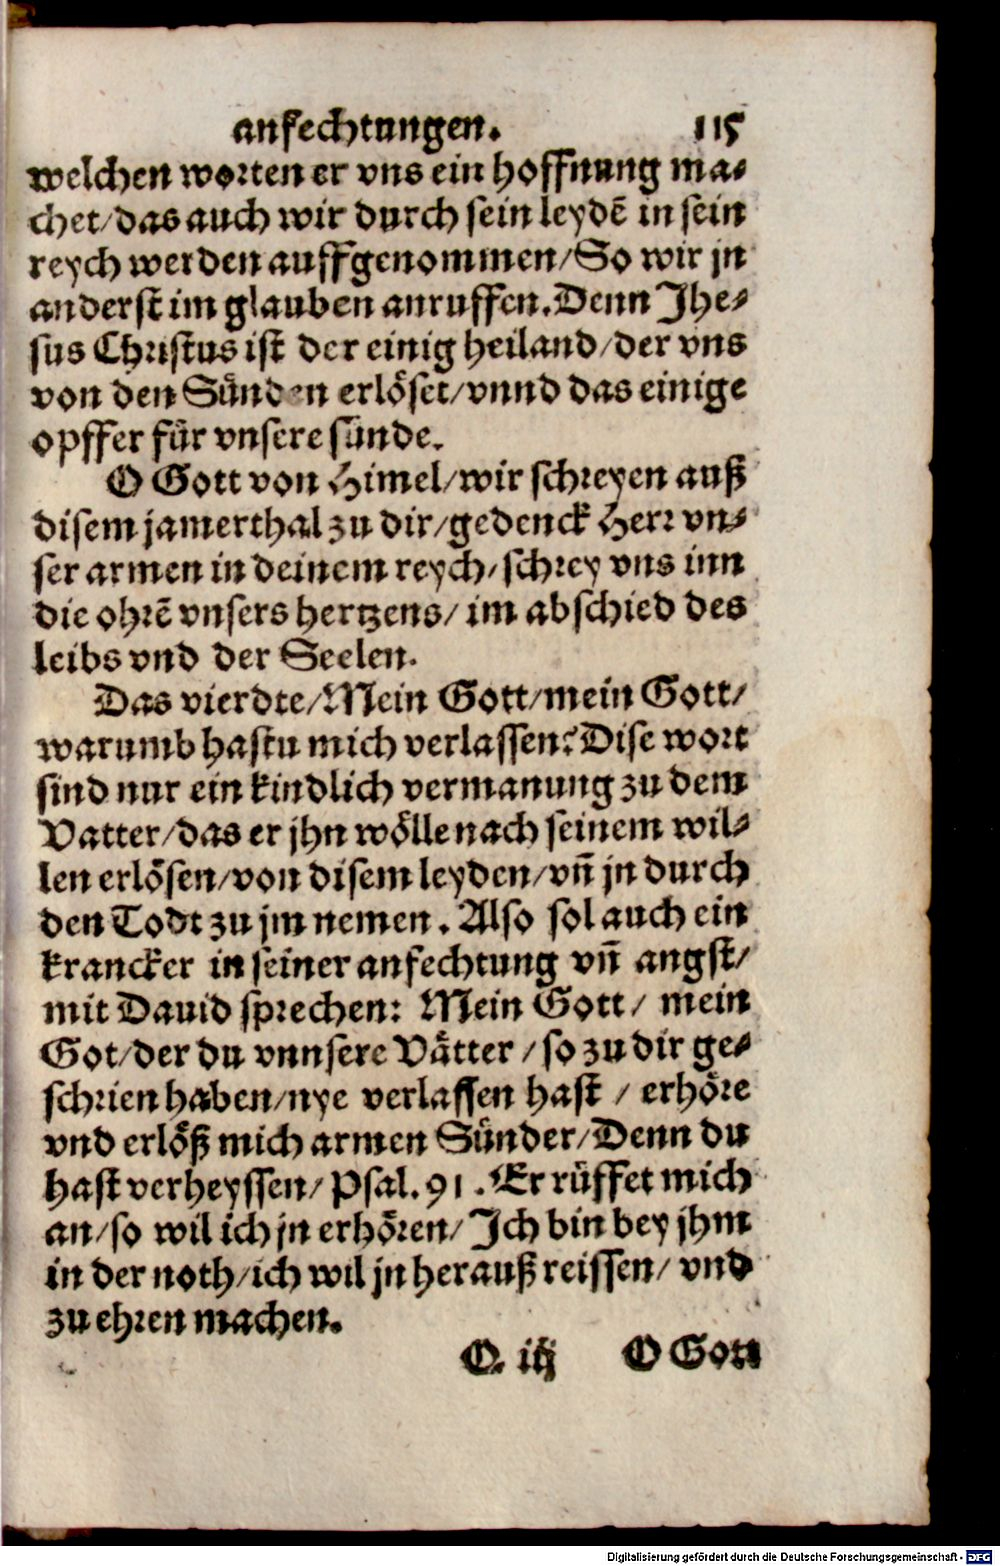 anfechtungen. 115
welchen worten er vns ein hoffnung ma⸗
chet/das auch wir durch sein leydẽ in sein
reych werden auffgenommen/So wir jn
anderst im glauben anruffen. Denn Jhe⸗
sus Christus ist der einig heiland/der vns
von den Sünden erlöset/vnnd das einige
opffer für vnsere sünde.
O Gott von Himel/wir schreyen auß
disem jamerthal zu dir/gedenck Herr vn⸗
ser armen in deinem reych/schrey vns inn
die ohrẽ vnsers hertzens/ im abschied des
leibs vnd der Seelen.
Das vierdte/Mein Gott/mein Gott/
warumb hastu mich verlassen? Dise wort
sind nur ein kindlich vermanung zu dem
Vatter/das er jhn wölle nach seinem wil⸗
len erlösen/von disem leyden/vñ jn durch
den Todt zu jm nemen. Also sol auch ein
krancker in seiner anfechtung vñ angst/
mit Dauid sprechen: Mein Gott/ mein
Got/der du vnnsere Vätter/so zu dir ge⸗
schrien haben/nye verlassen hast/ erhöre
vnd erlöß mich armen Sünder/Denn du
hast verheyssen/ Psal. 91. Er rüffet mich
an/so wil ich jn erhören/ Jch bin bey jhm
in der noth/ich wil jn herauß reissen/ vnd
zu ehren machen.
O. iij O Gott
Digitalisierung gefördert durch die Deutsche Forschungsgemeinschaft - DFG